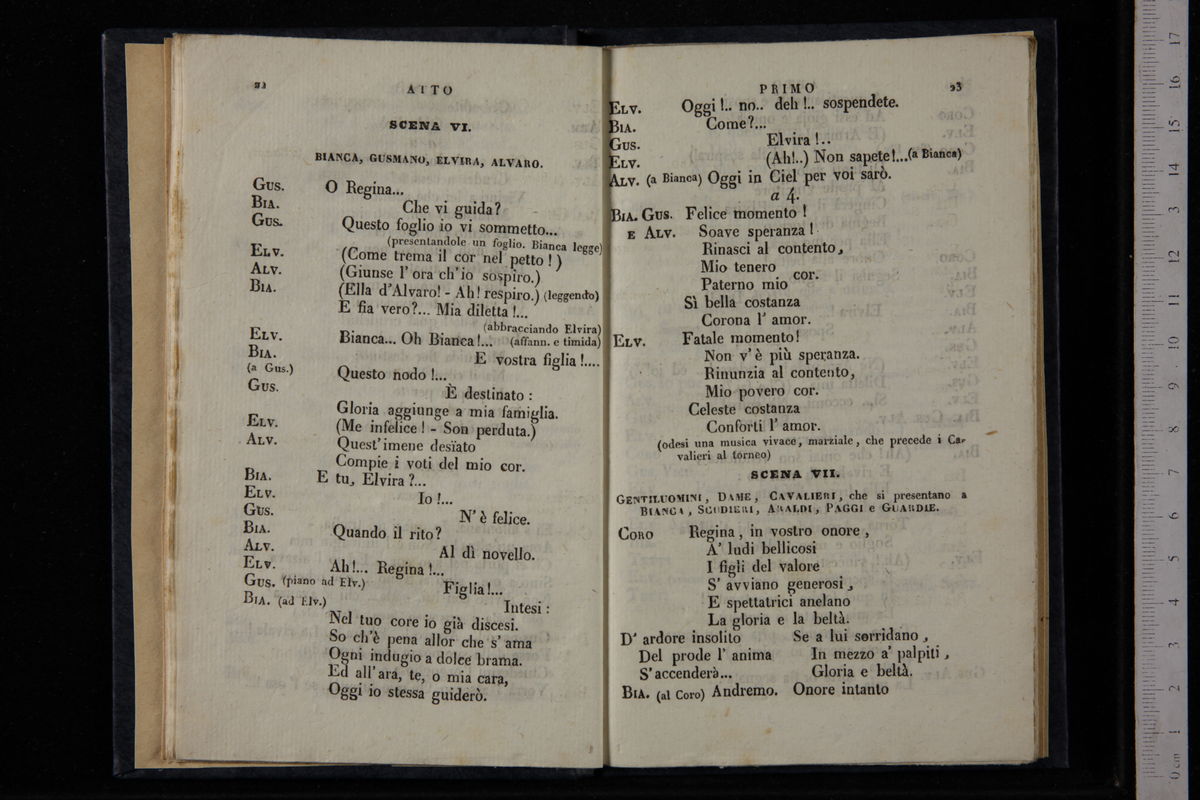 22 ATTO
SCENA VI.
BIANCA, GUSMANO, ELVIRA, ALVARO.
GUS. O Regina...
BIA. Che vi guida?
GUS. Questo foglio io vi sommetto...
(presentandole un foglio. Bianca legge)
ELV. (Come trema il cor nel petto!)
ALV. (Giunse l'ora ch'io sospiro.)
BIA. (Ella d'Alvaro! - Ah! respiro.) (leggendo)
E fia vero?... Mia diletta!...
(abbracciando Elvira)
ELV. Bianca... Oh Bianca!... (affann. e timida)
BIA. E vostra figlia!....
(a Gus.) Questo nodo!...
GUS. È destinato:
Gloria aggiunge a mia famiglia.
ELV. (Me infelice! - Son perduta.)
ALV. Quest'imene desïato
Compie i voti del mio cor.
BIA. E tu, Elvira?...
ELV. Io!...
GUS. N'è felice.
BIA. Quando il rito?
ALV. Al dì novello.
ELV. Ah!... Regina!...
GUS. (piano ad Elv.) Figlia!...
BIA. (ad Elv.) Intesi:
Nel tuo core io già discesi.
So ch'è pena allor che s'ama
Ogni indugio a dolce brama.
Ed all'ara, te, o mia cara,
Oggi io stessa guiderò.
PRIMO 23
ELV. Oggi!.. no.. deh!.. sospendete.
BIA. Come?...
GUS. Elvira!..
ELV. (Ah!..) Non sapete!...(a Bianca)
ALV. (a Bianca) Oggi in Ciel per voi sarò.
a 4.
BIA. GUS. Felice momento!
E ALV. Soave speranza!
Rinasci al contento,
Mio tenero
cor.
Paterno mio
Sì bella costanza
Corona l'amor.
ELV. Fatale momento!
Non v'è più speranza.
Rinunzia al contento,
Mio povero cor.
Celeste costanza
Conforti l'amor.
(odesi una musica vivace, marziale, che precede i Ca-
valieri al torneo)
SCENA VII.
GENTILUOMINI, DAME, CAVALIERI, che si presentano a
BIANCA, SCUDIERI, ARALDI, PAGGI e GUARDIE.
CORO Regina, in vostro onore,
A' ludi bellicosi
I figli del valore
S'avviano generosi,
E spettatrici anelano
La gloria e la beltà.
D'ardore insolito Se a lui sorridano,
Del prode l'anima In mezzo a' palpiti,
S'accenderà... Gloria e beltà.
BIA. (al Coro) Andremo. Onore intanto
0 cm 1 2 3 4 5 6 7 8 9 10 11 12 13 14 15 16 17